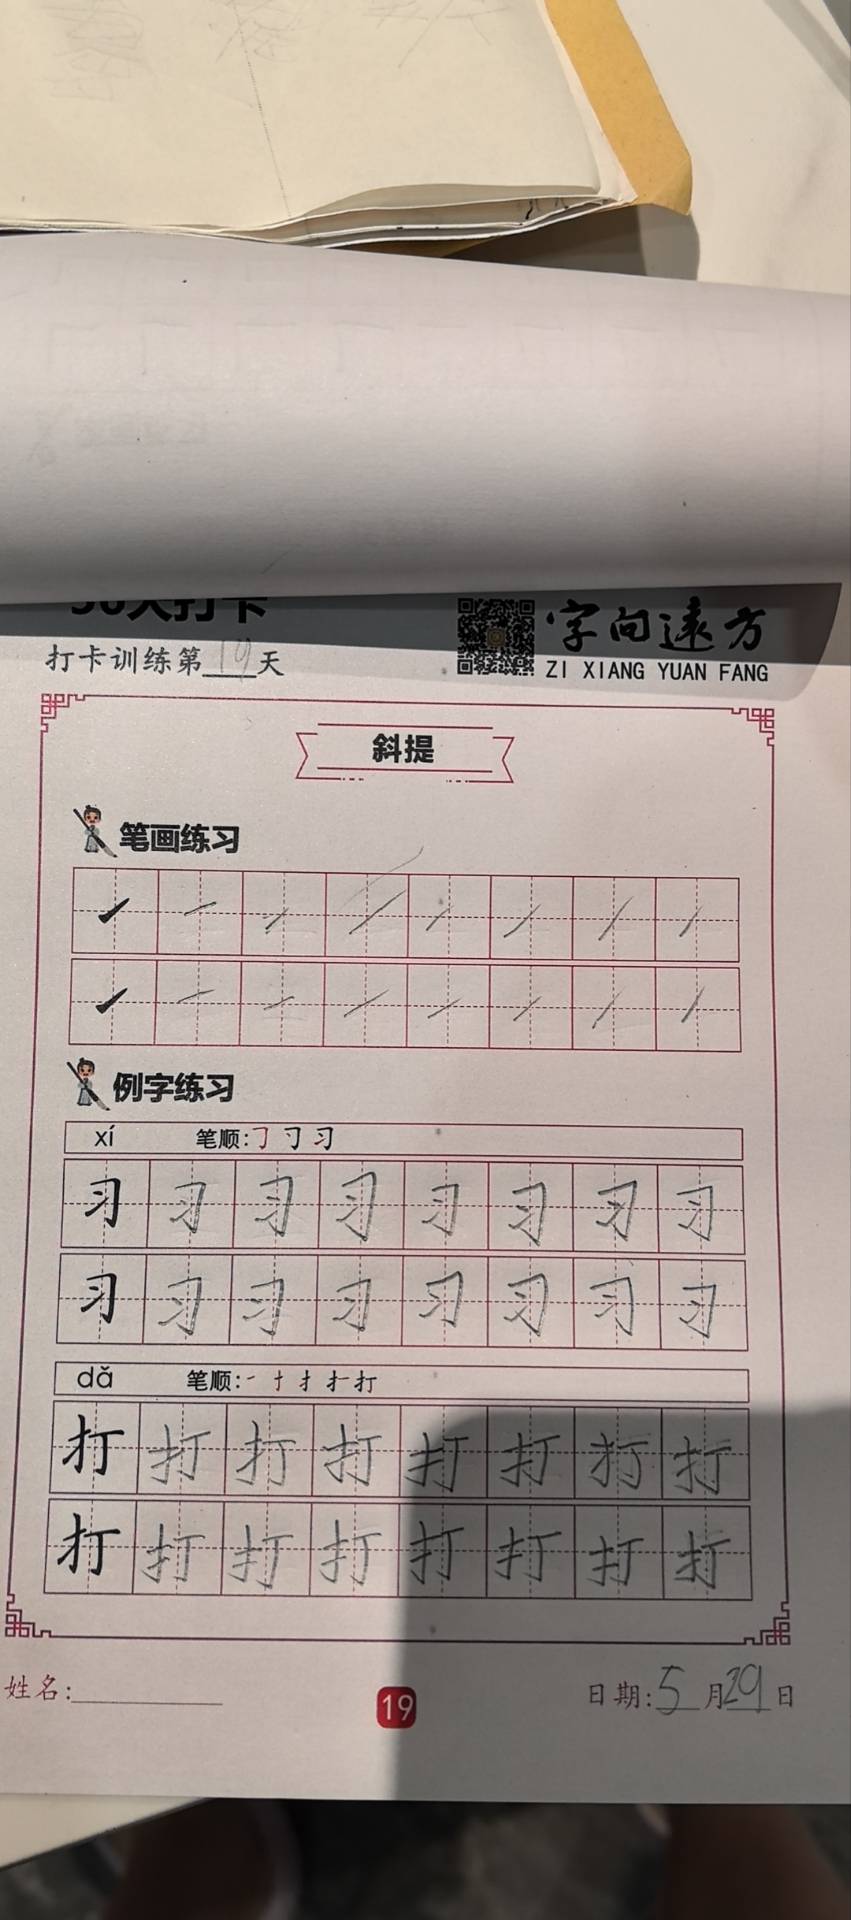 天打卡
字向远方
ZI XIANG YUAN FANG
打卡训练第19天
斜提
笔画练习
例字练习
xí 笔顺:
习 习 习 习 习 习 习 习
习 习 习 习 习 习 习 习
dǎ 笔顺:
打 打 打 打 打 打 打 打
打 打 打 打 打 打 打 打
姓名:
19
日期:5月29日